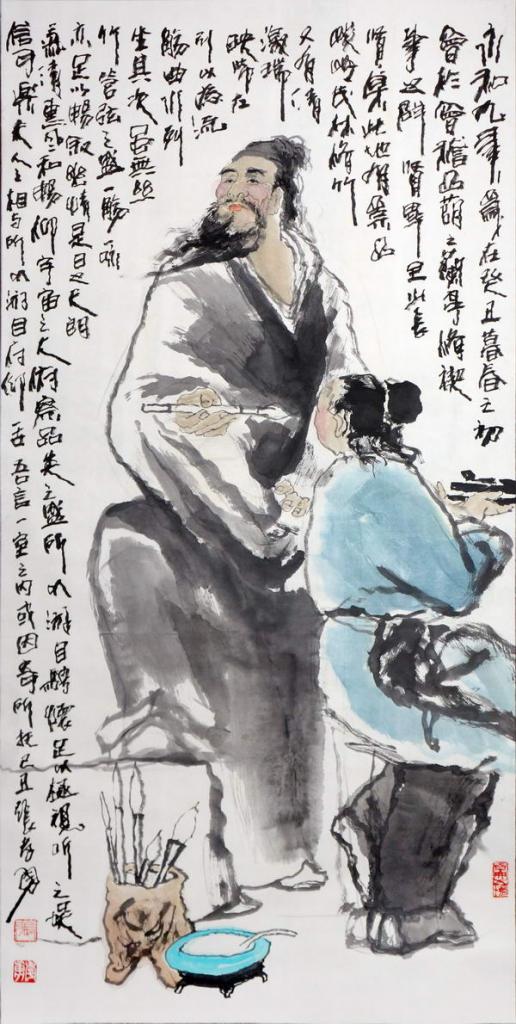 永和九年歲在癸丑暮春之初
會於會稽山陰之蘭亭脩禊
事也群賢畢至少長
集此地有崇山
峻嶺茂林脩竹
又有清
激湍
映帶左
引以為流
觴曲水列
坐其次雖無絲
竹管弦之盛一觴一詠
亦足以暢敘幽情是日也天朗
氣清惠風和暢仰宇宙之大俯察品类之盛所以游目騁懷足以極視听之娱
信可樂也夫人之相与所以游目俯仰吾言一室之内或因寄所托己丑張